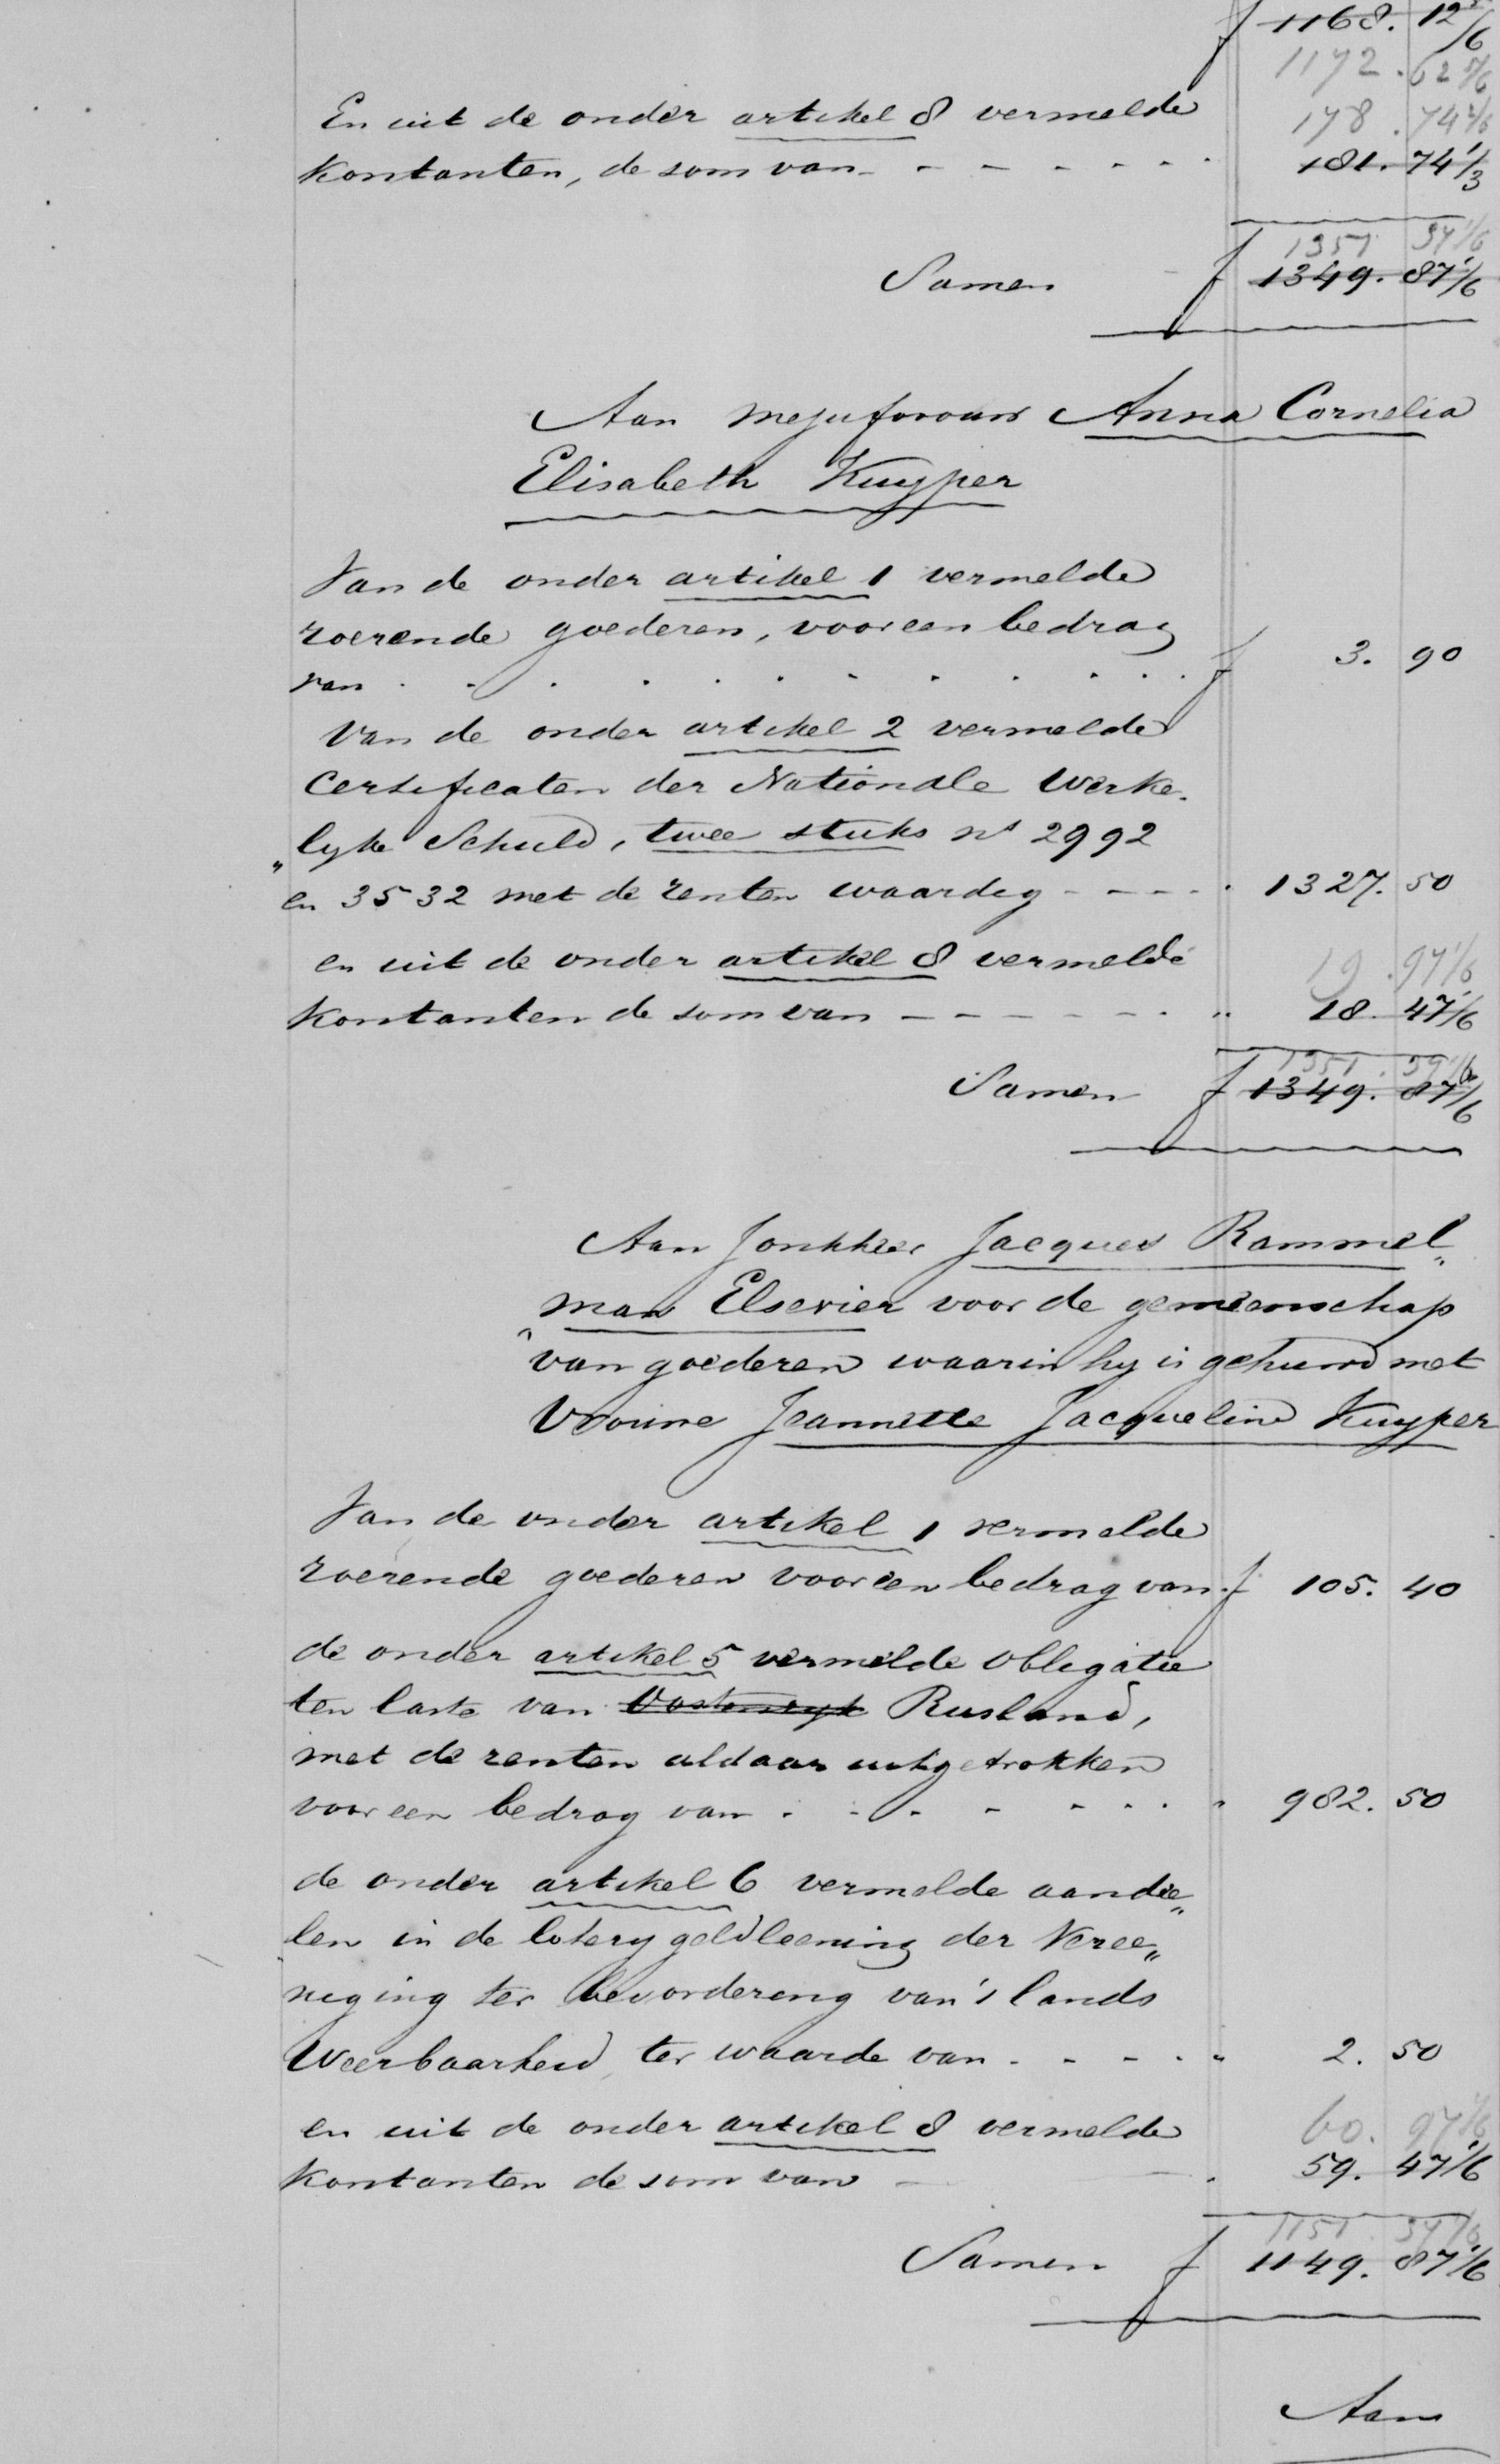 f 1168. 12 5/6
1172. 62 5/6
En uit de onder artikel 8 vermelde 178. 74 2/6
kontanten, de som van - - - - - - 181. 74 1/3
1351 37 1/6
Samen f 1349. 87 1/6
Aan mejufvrouw Anna Cornelia
Elisabeth Kuyper
Van de onder artikel 1 vermelde
roerende goederen, voor een bedrag
van . . . . . . . . . . f 3. 90
Van de onder artikel 2 vermelde
Certificaten der Nationale Werke-
"lyke Schuld, twee stuks no 2992
en 3532 met de renten waardig - - - - 1327. 50
en uit de onder artikel 8 vermelde 19. 97 1/6
kontanten de som van - - - - - - " 18. 47 1/6
1351. 37 1/6
Samen f 1349. 87 1/6
Aan Jonkheer Jacques Rammel"
"man Elsevier voor de gemeenschap
van goederen waarin hy is gehuwd met
Vrouwe Jeannette Jacqueline Kuyper
Van de onder artikel 1 vermelde
roerende goederen voor een bedrag van f 105. 40
de onder artikel 5 vermelde obligatie
ten laste van Oostenryk Rusland,
met de renten aldaar uitgetrokken
voor een bedrag van . - - - - - . . " 982. 50
de onder artikel 6 vermelde aandee"
len in de lotery geldleening der Veree"
niging ter bevordering van 's lands
Weerbaarheid, ter waarde van - - - - " 2. 50
en uit de onder artikel 8 vermelde 60. 97 1/6
kontanten de som van - 59. 47 1/6
1151. 37 1/6
Samen f 1149. 87 1/6
Aan